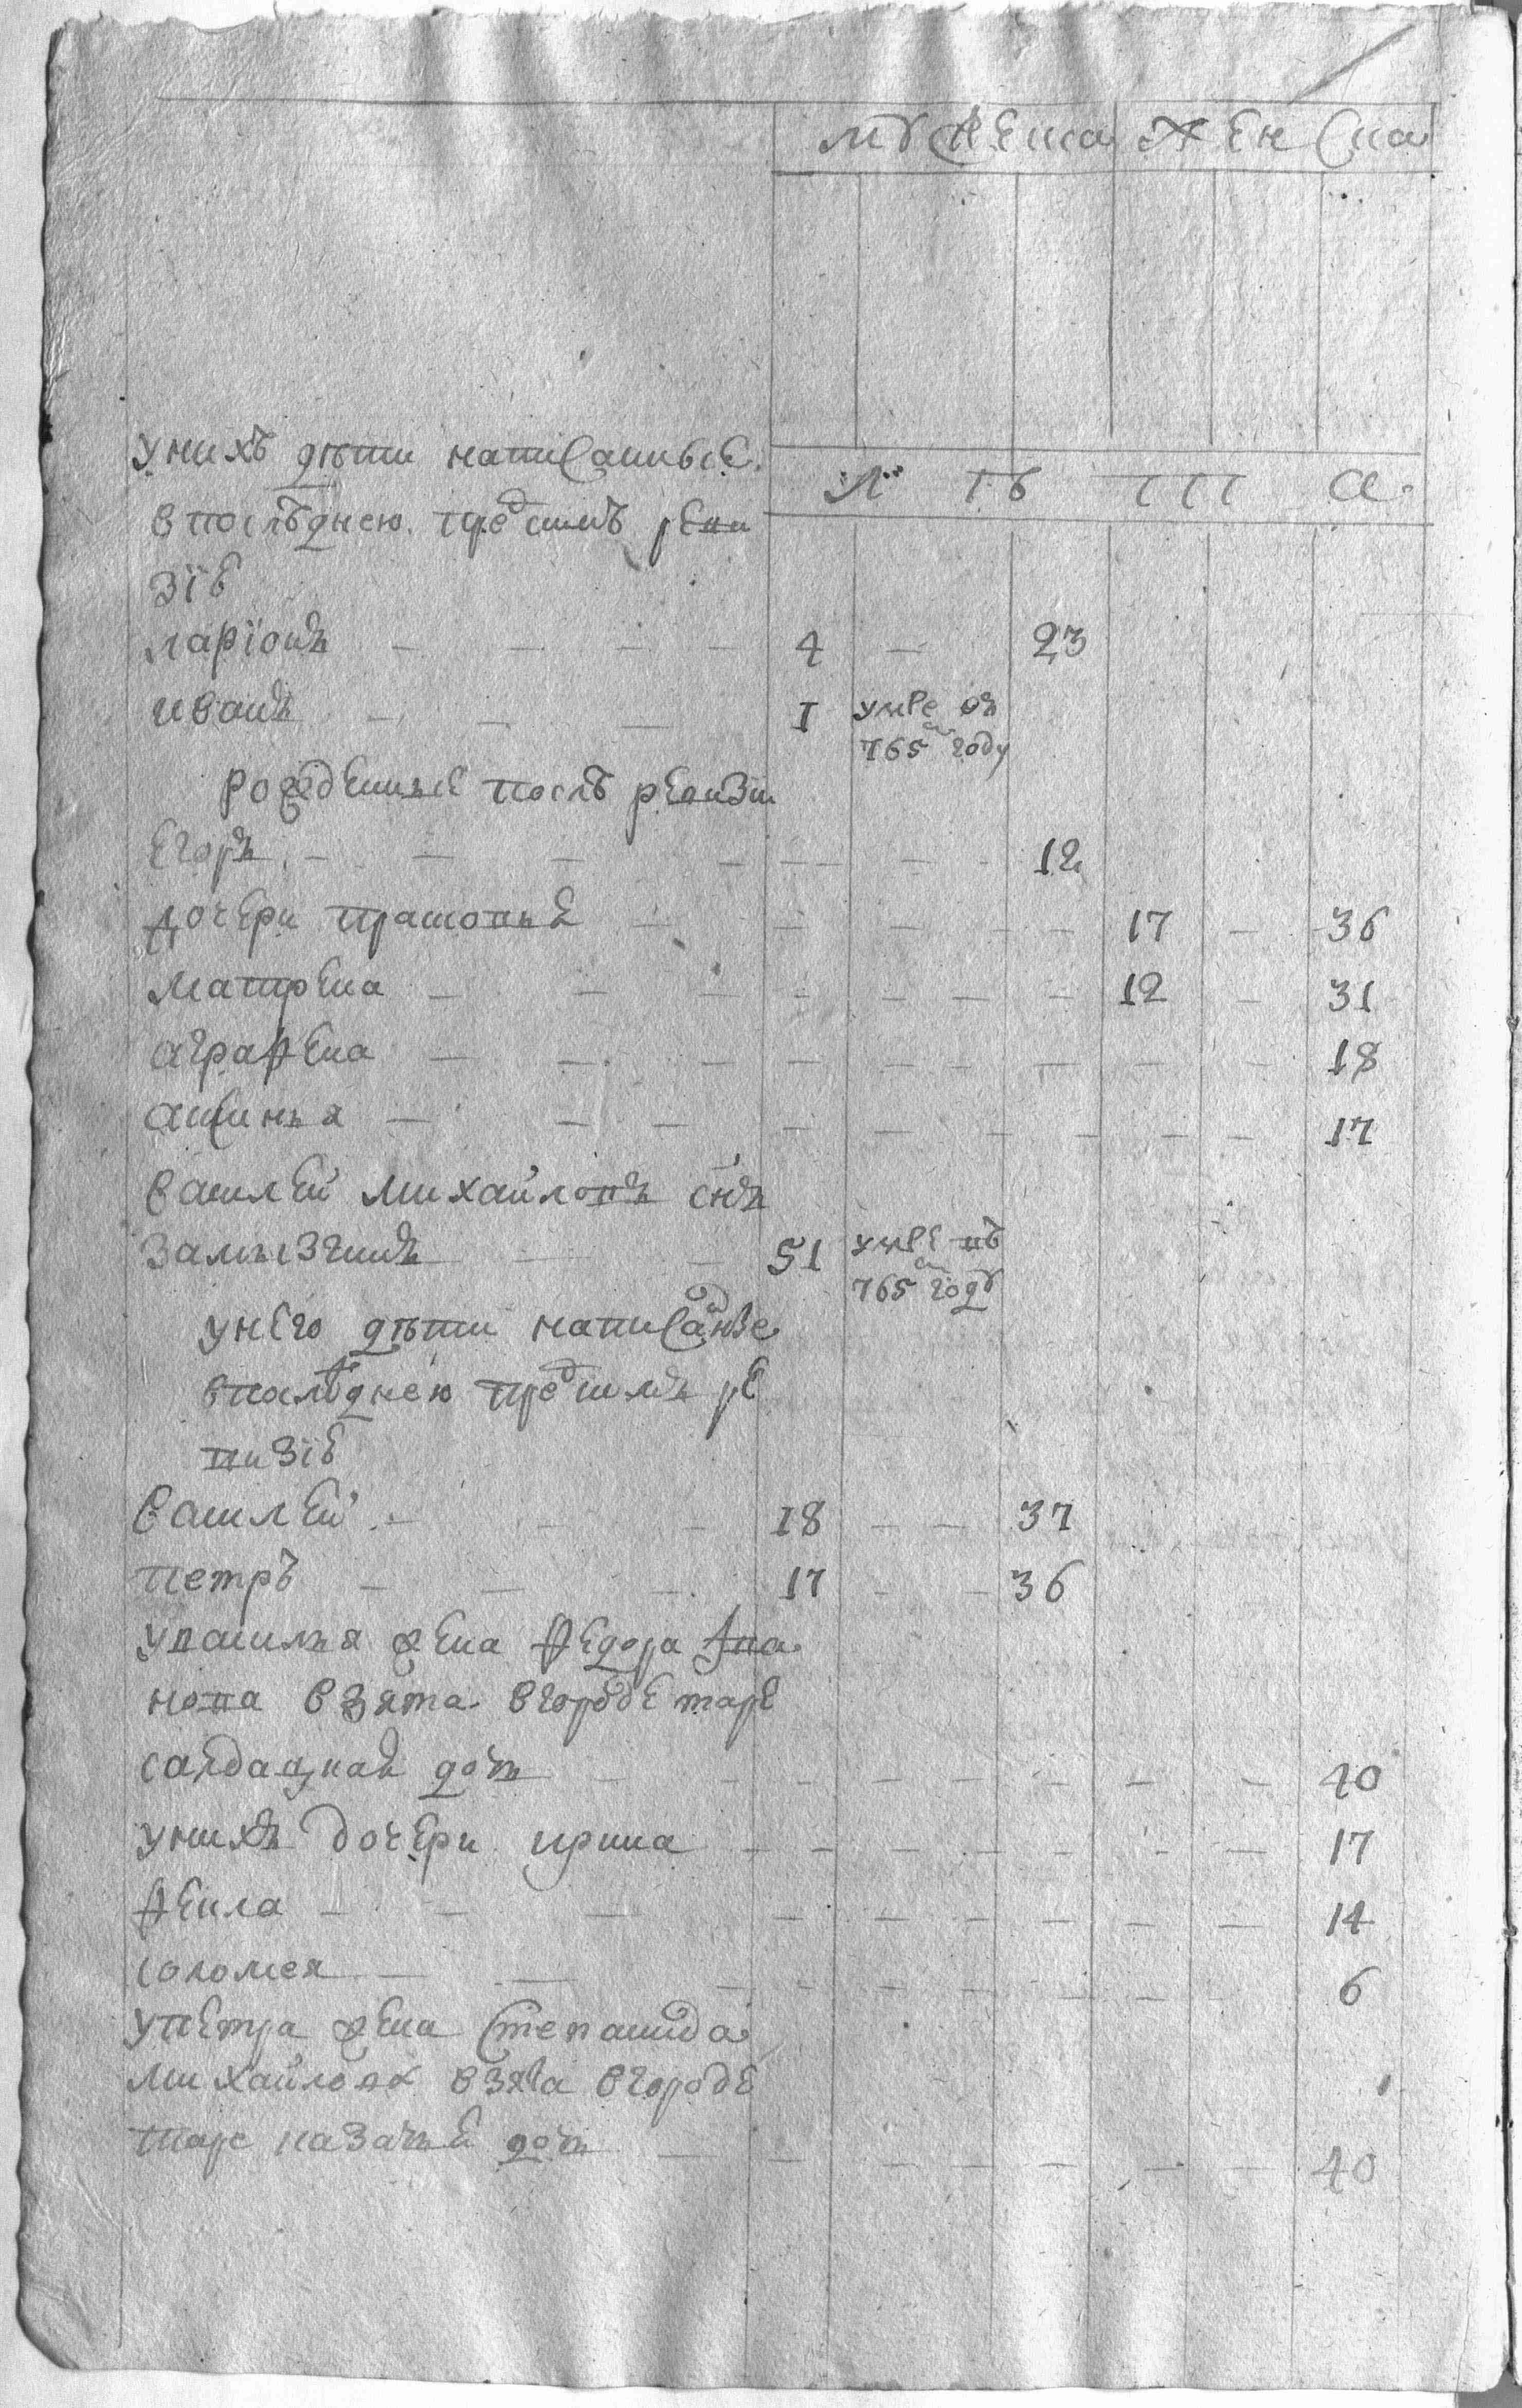 мужеска женска
л ѣ т а
у нихъ дѣти написанные
в последнею пред симъ реви
зїе
ларїонъ — — — — 4 — 23
иванъ — — — I умре въ
765 м году
рожденные послѣ ревизїи
егоръ — — — — — — — 12
дочери прасковья — — — — — 17 — 36
матрена — — — — — — — 12 — 31
аграфена — — — — — — — — — 18
аксинья — — — — — — — — — 17
василей михайловъ снъ
замызгинъ — — 51 умре въ
765 м году
у него дѣти написанные
в последнею пред симъ ре
визїе
василей — — — 18 — — 37
петръ — — — 17 — — 36
у василья жена федора
нова взята в городе таре
салдацкая дочь — — — — — — — — 40
у нихъ дочери ирина — — — — — — — 17
фекла — — — — — — — — — 14
соломея — — — — — — — — 6
у петра жена степанида
михайлова взята в городе
таре казачья дочь — — — — — — — 40